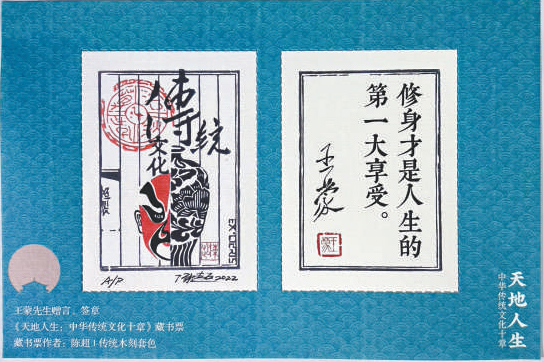 傳統
文化
EX LIBRIS
A/P
2022
修身才是人生的
第一大享受。
王蒙
王蒙先生赠言、签章
《天地人生：中华传统文化十章》藏书票
藏书票作者：陈超 | 传统木刻套色
天地人生
中华传统文化十章